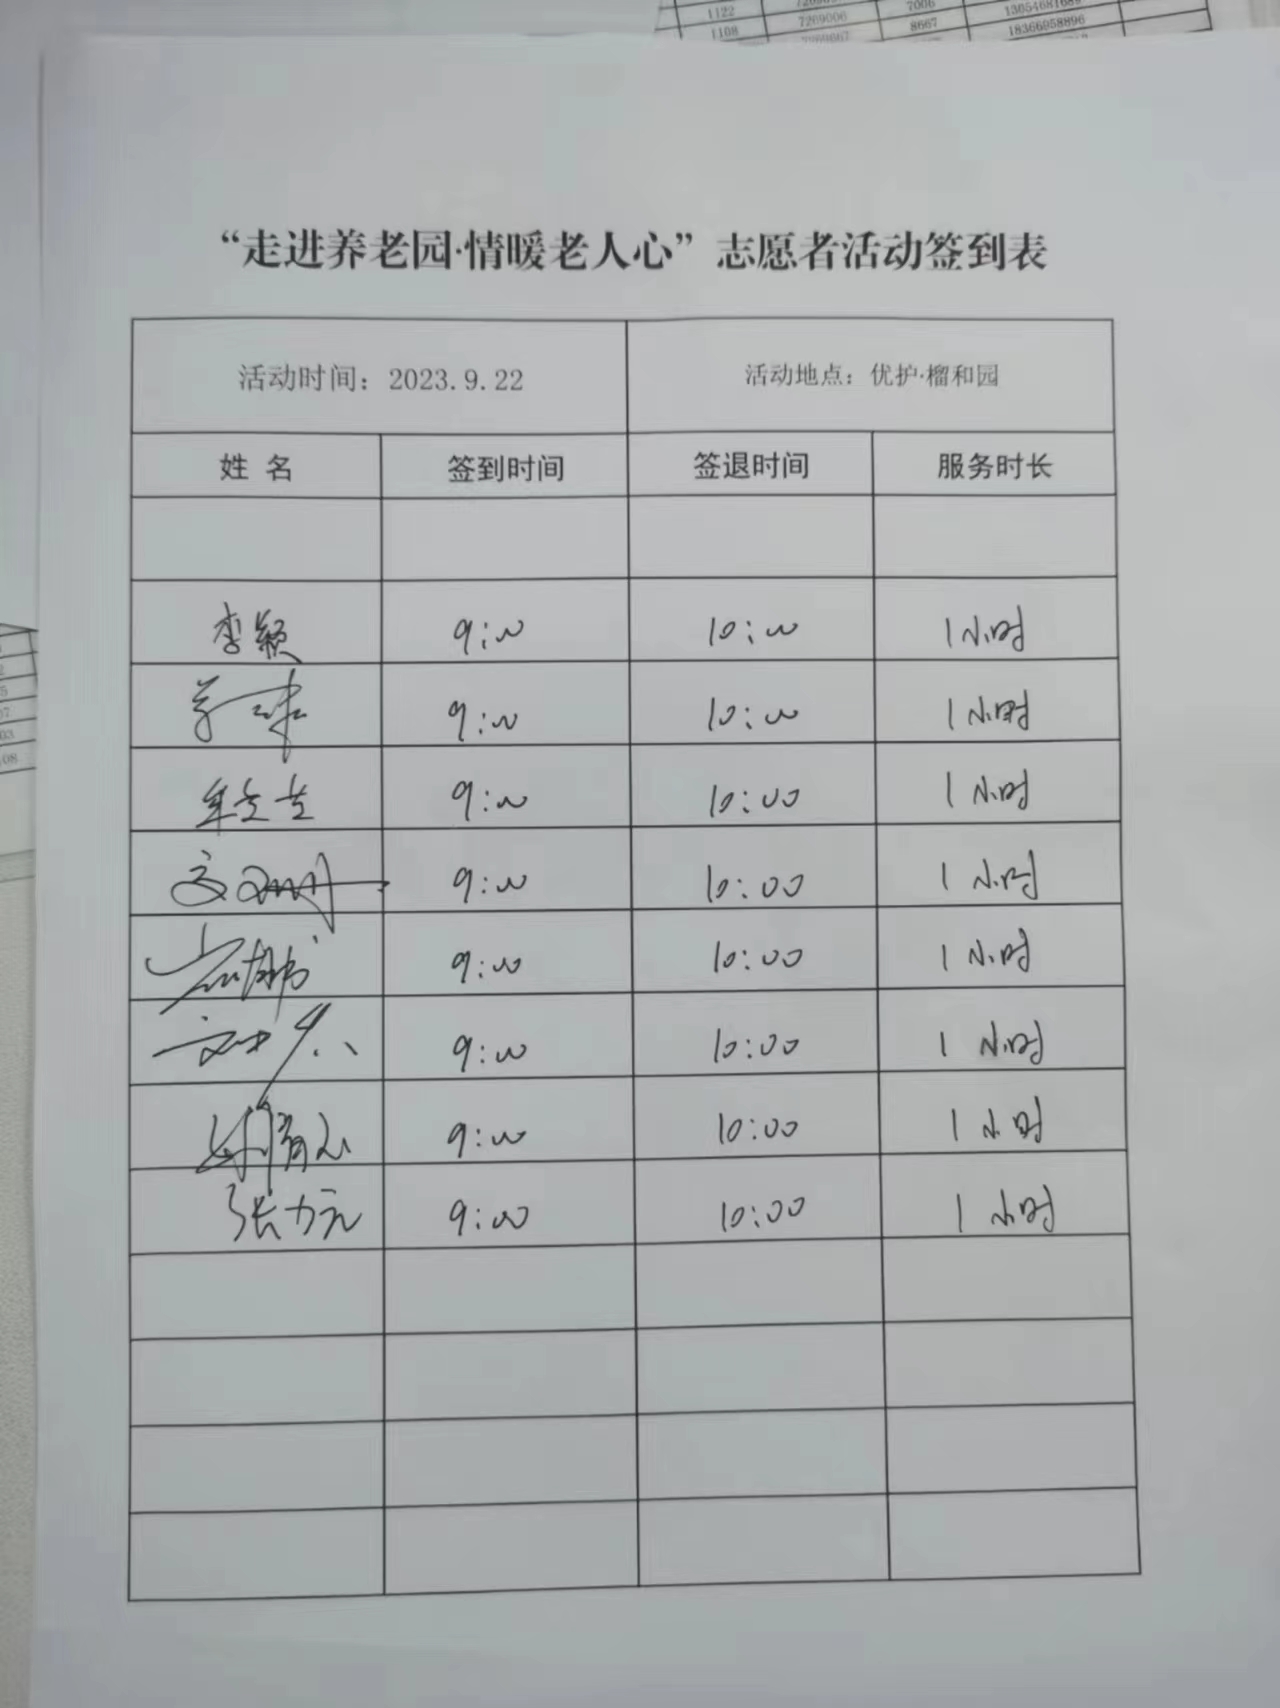 1122
7006
1108
7269006
8667
18366958896
“走进养老园·情暖老人心”志愿者活动签到表
活动时间：2023.9.22 活动地点：优护·榴和园
姓 名 签到时间 签退时间 服务时长
李颖 9:00 10:00 1小时
9:00 10:00 1小时
9:00 10:00 1小时
9:00 10:00 1小时
9:00 10:00 1小时
9:00 10:00 1小时
9:00 10:00 1小时
张力元 9:00 10:00 1小时